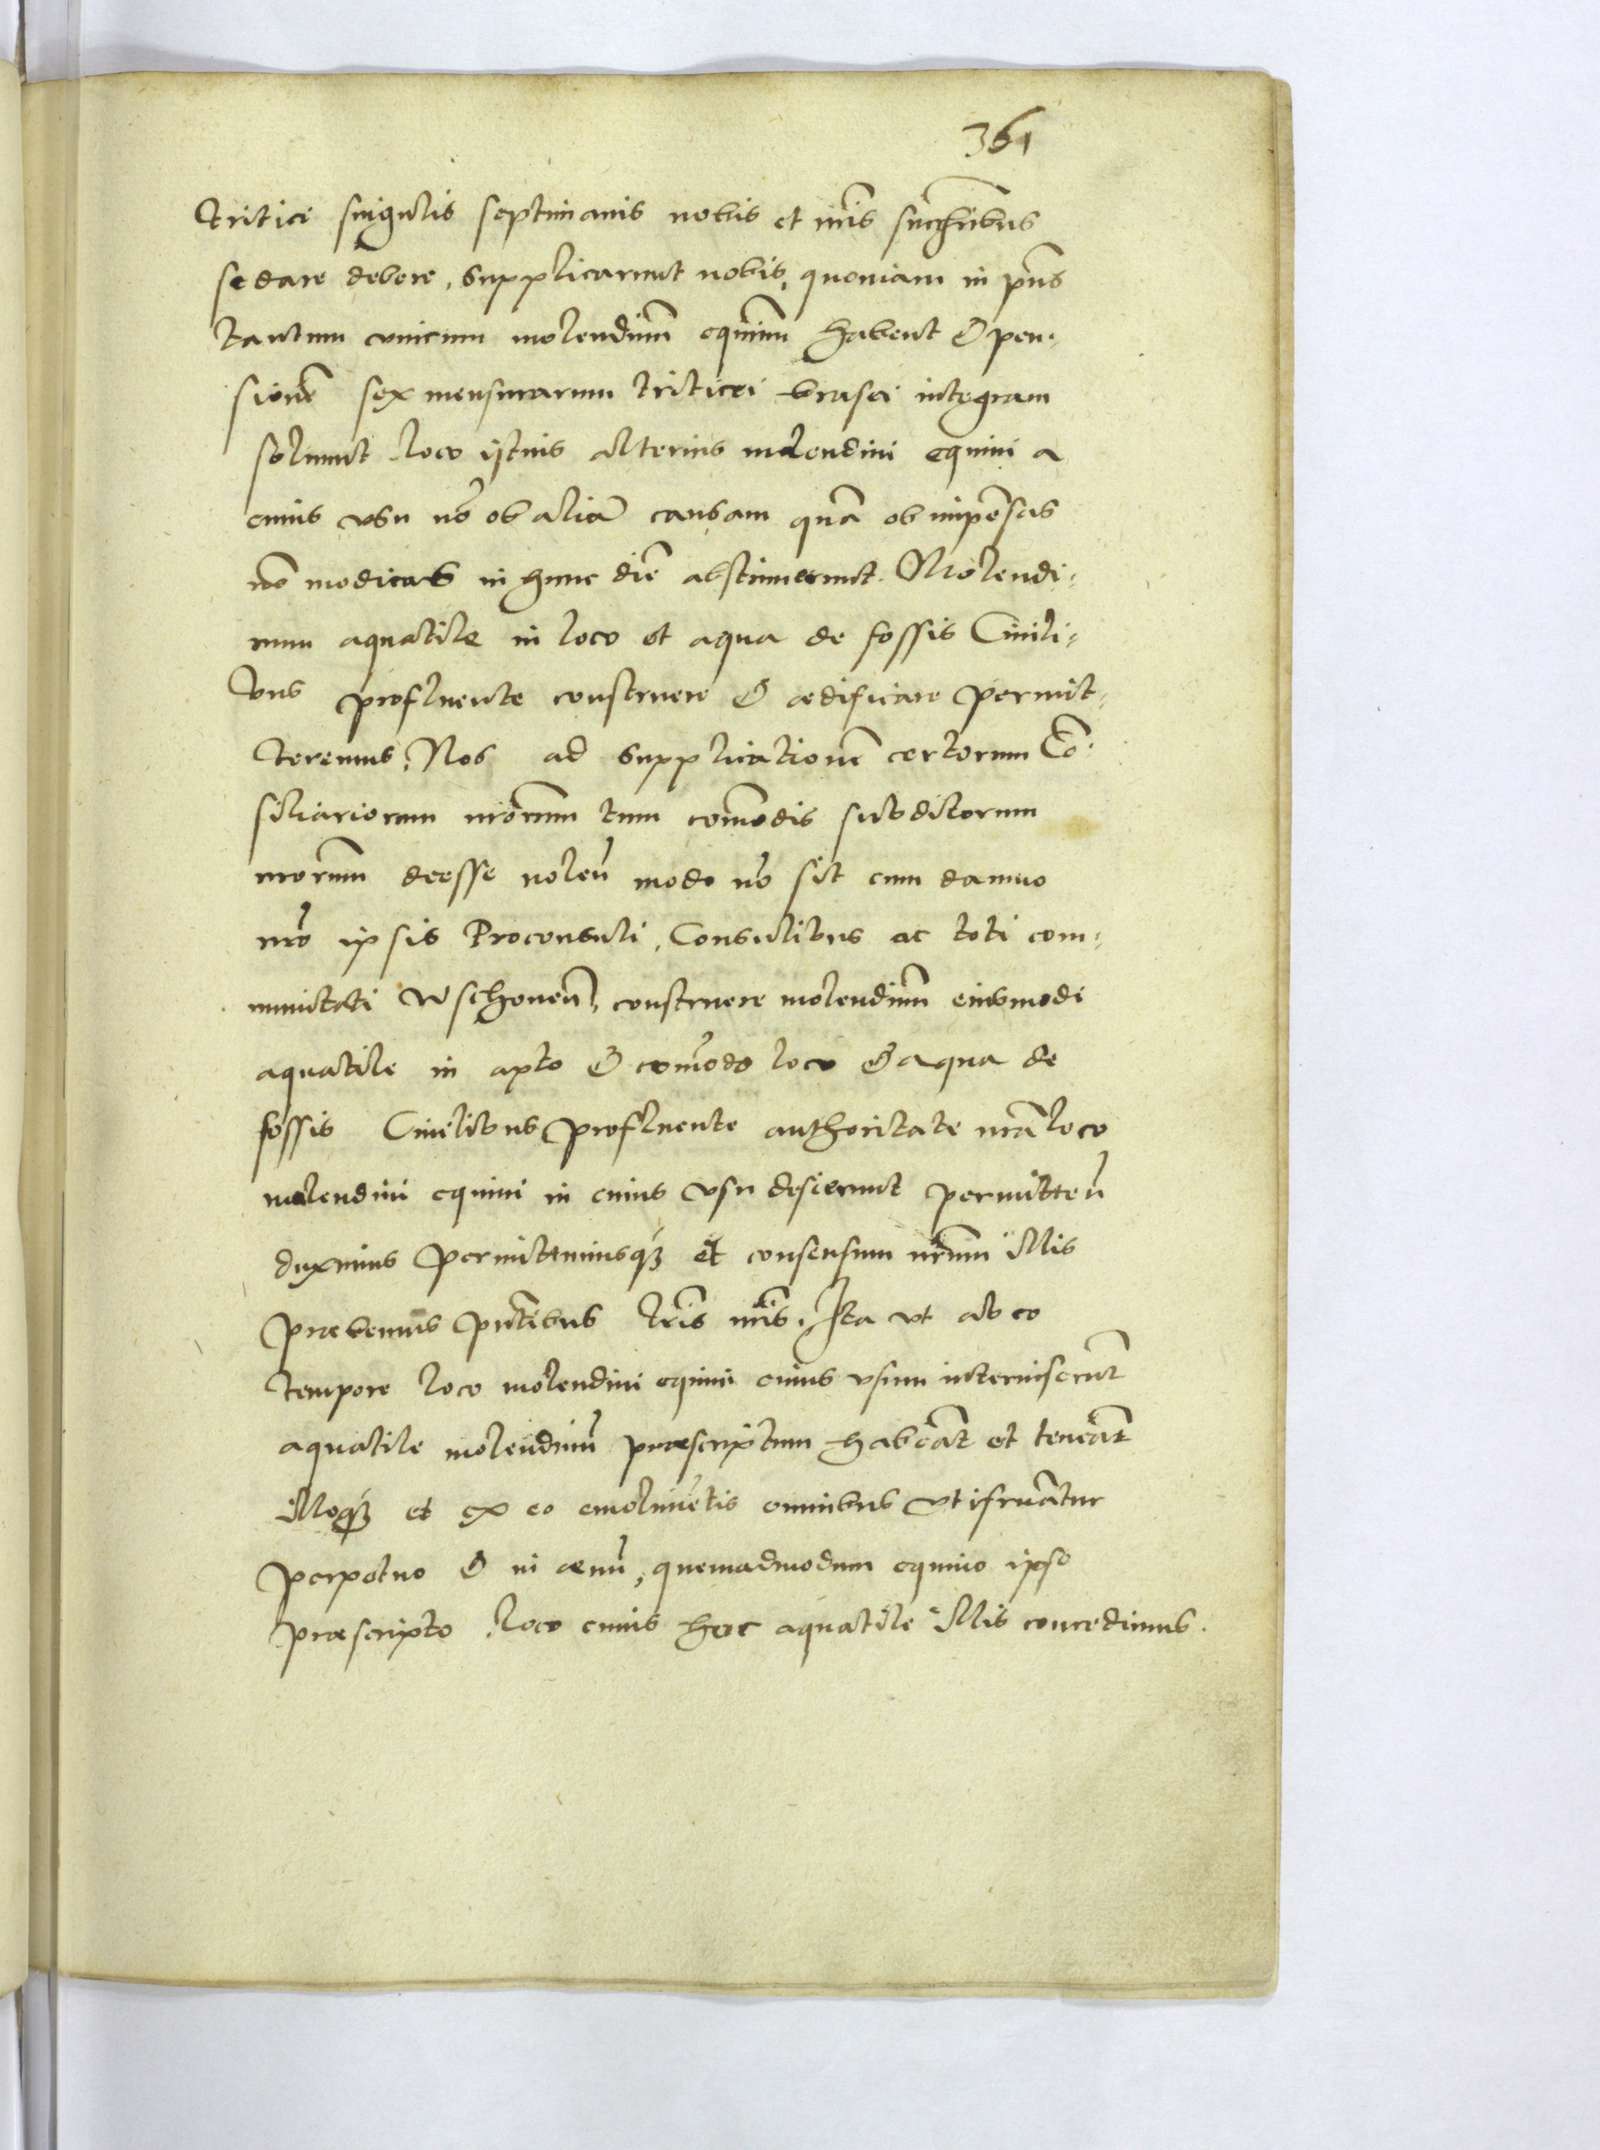 361
tritici singulis septimanis nobis et nris succribus
se dare debere, supplicarunt nobis, quoniam in pns
tantum vnicum molendinū equinū habent & pen-
sionē sex mensurarum triticei brasei integram
soluunt loco istius alterius molendini equini a
cuius vsu nō ob aliā causam quā ob impēsas
nō modicas in hunc diē abstinuerunt. Molendi-
num aquatile in loco et aqua de fossis Ciuili-
bus profluente construere & ædificare permit-
teremus, Nos ad supplicationē certorum Cō-
siliariorum nrorum tum cōmodis subditorum
nrorum deesse nolen modo nō sit cum damno
nro ipsis Proconsuli, Consulibus ac toti com-
munitati Wschouen, construere molendinū eiusmodi
aquatile in apto & cōmodo loco & aqua de
fossis Ciuilibus profluente authoritate nrā loco
molendini equini in cuius vsu desierunt permitten
duximus permittimusq3 et consensum nrum illis
præbemus pntibus lris nris. Ita vt ab eo
tempore loco molendini equini cuius vsum intermiserūt
aquatile molendinū præscriptum habeāt et teneāt
illoq3 et ex eo emolumētis omnibus vtifruātur
perpetuo & in æuū, quemadmodum equino ipso
præscripto loco cuius hoc aquatile illis concedimus.